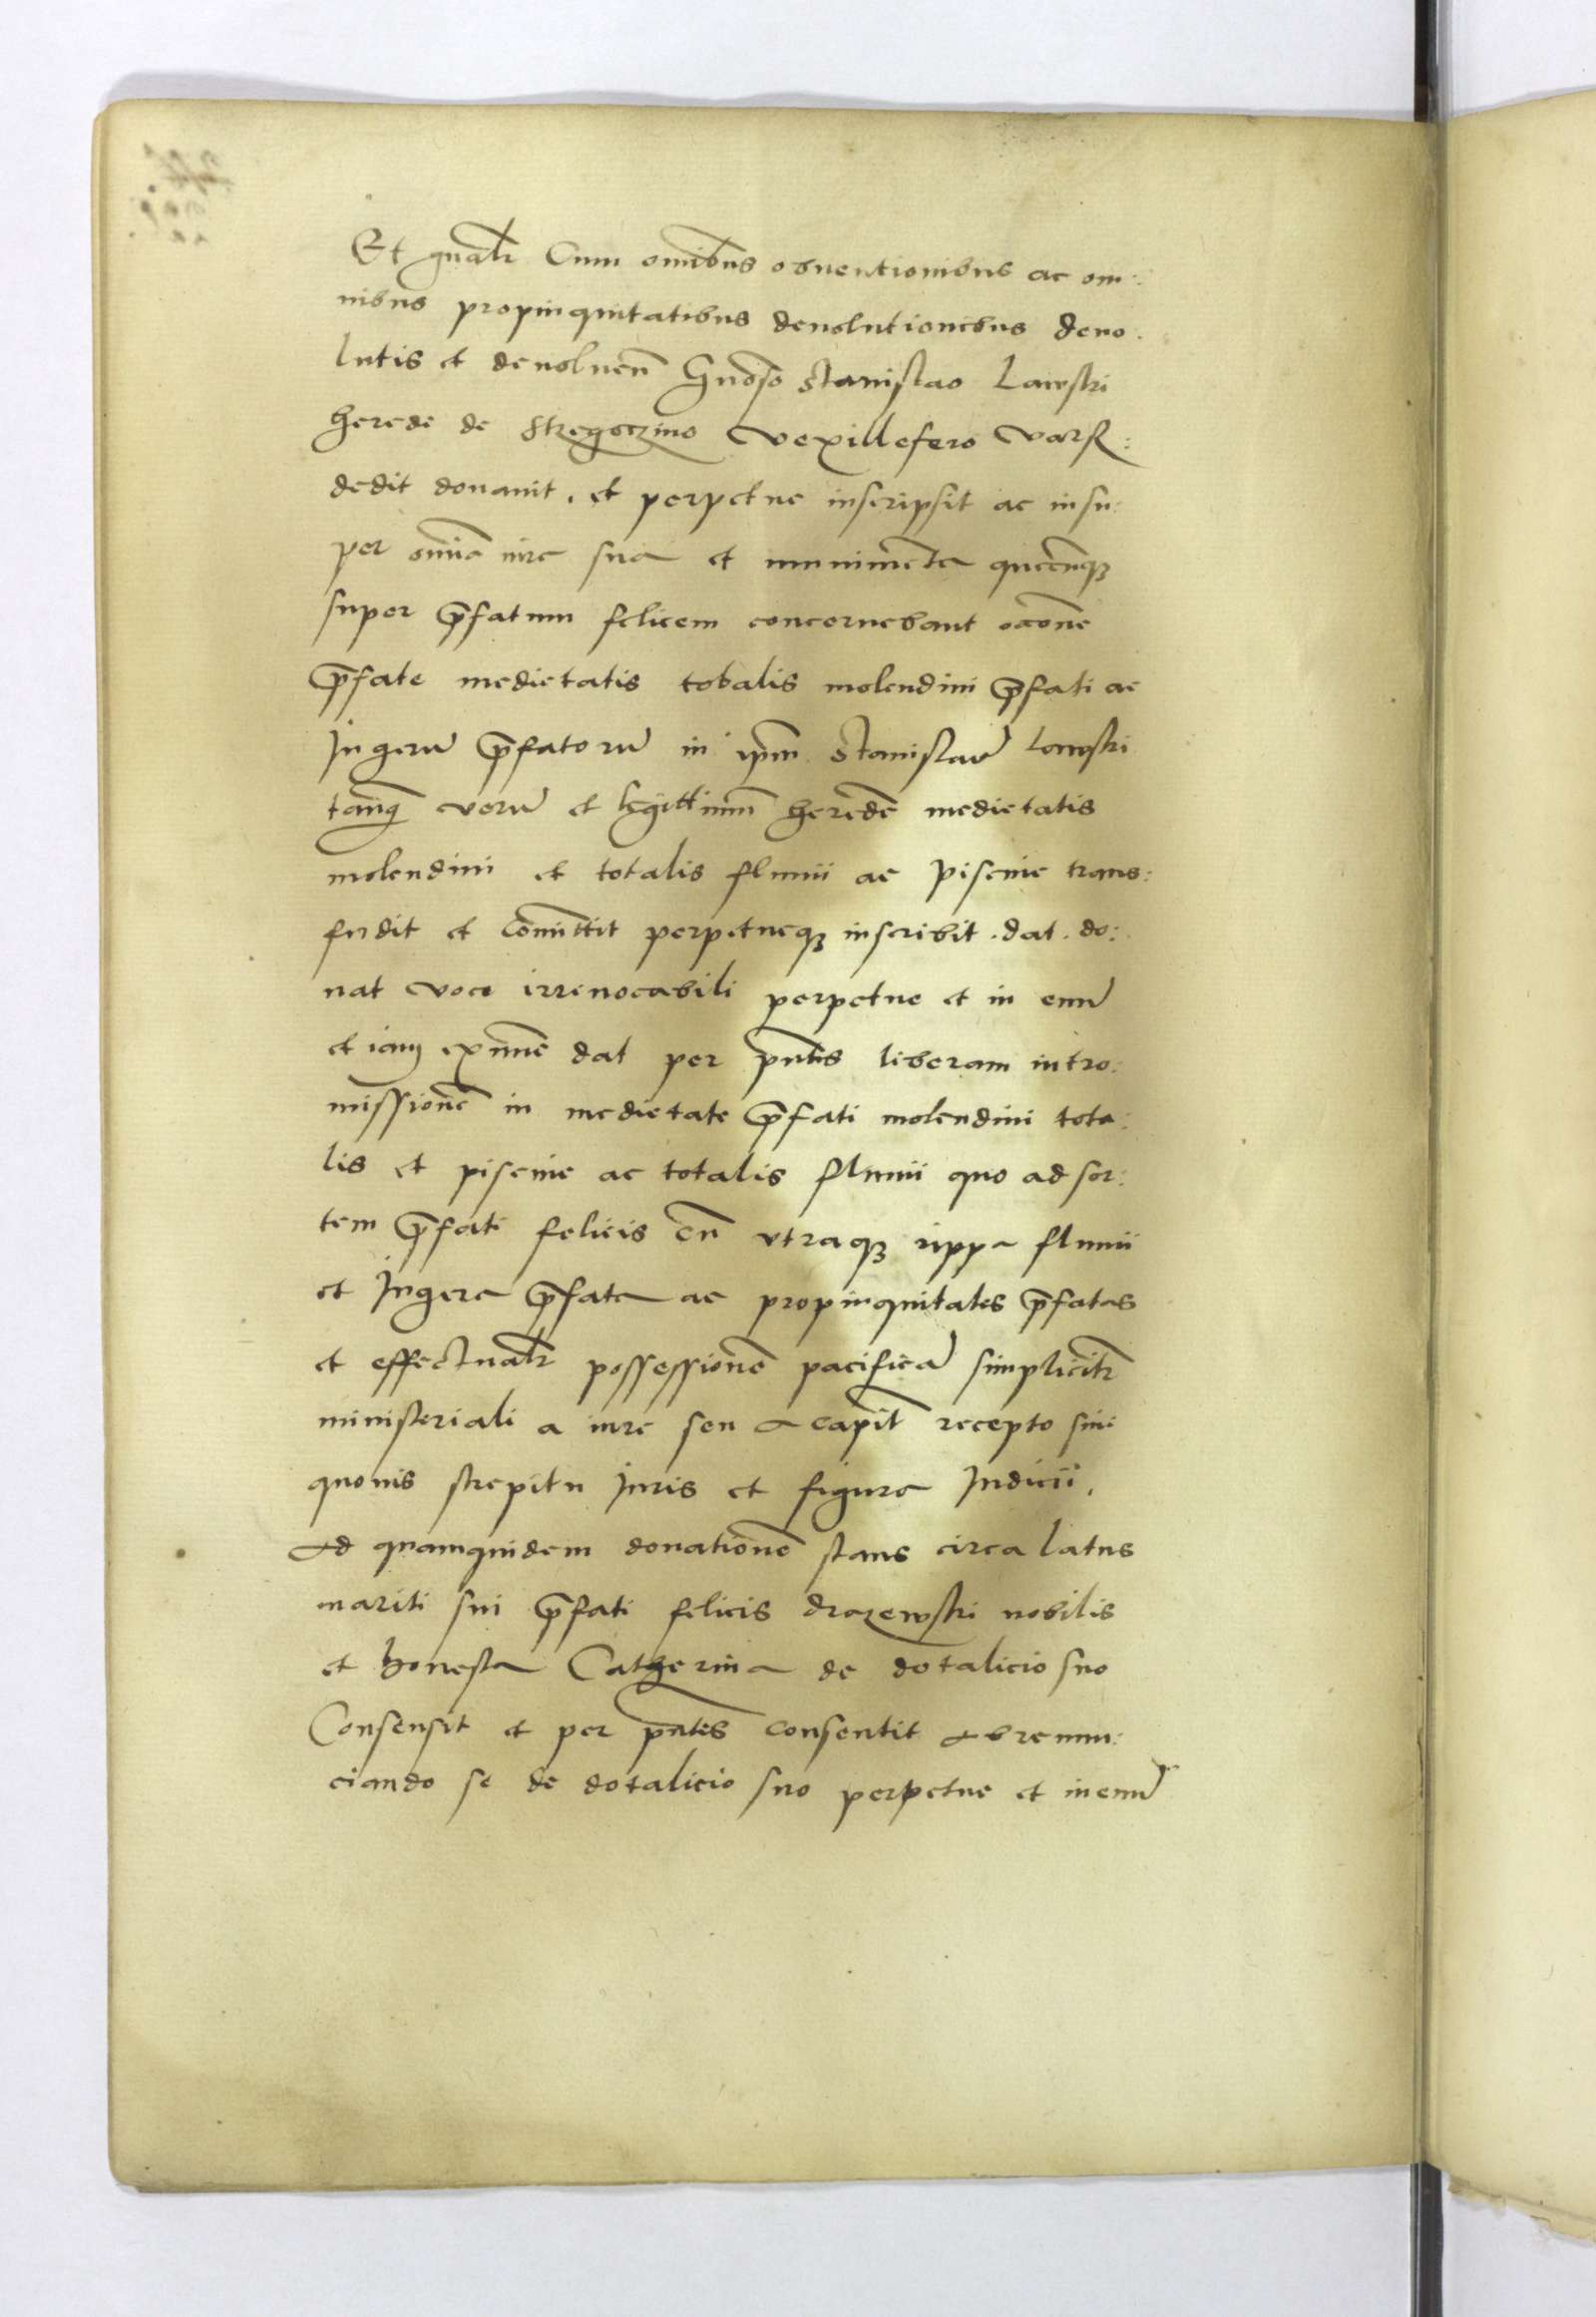 Et gnalr Cum omibus obuentionibus ac om:
nibus propinquitatibus deuolutionibus deuo:
lutis et deuoluen Gnoso Stanislao Lawski
herede de Strzegoczino vexillefero vars:
dedit donauit, et perpetue inscripsit ac insu:
per omia iura sua et munimenta quecunq3
super pfatum felicem concernebant ocone
pfate medietatis totalis molendini pfati ac
Jugeru pfatoru in ipm Stanislau Lawski
tanq veru et legittimu herede medietatis
molendini et totalis fluuii ac piscine trans:
fudit et comittit perpetueq3 inscribit . dat . do:
nat voce irreuocabili perpetue et in euu
et iam ex nunc dat per pntis liberam intro:
missione in medietate pfati molendini tota:
lis et piscine ac totalis fluuii quo ad sor:
tem pfati felicis cu vtraq3 rippa fluuii
et Jugera pfata ac propinquitates pfatas
et effectualr possessione pacifica simplicitr
ministeriali a iure seu a capit recepto sine
quouis strepitu Juris et figura Judicii,
Ad quamquidem donatione stans circa latus
mariti sui pfati felicis drozewski nobilis
et honesta Catherina de dotalicio suo
Consensit et per pntes consentit abrenun:
ciando se de dotalicio suo perpetue et in euu